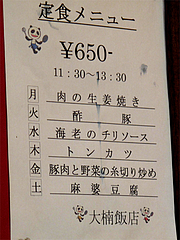 定食メニュー
¥650-
11:30～13:30
月 肉の生姜焼き
火 酢豚
水 海老のチリソース
木 トンカツ
金 豚肉と野菜の糸切り炒め
土 麻婆豆腐
大楠飯店